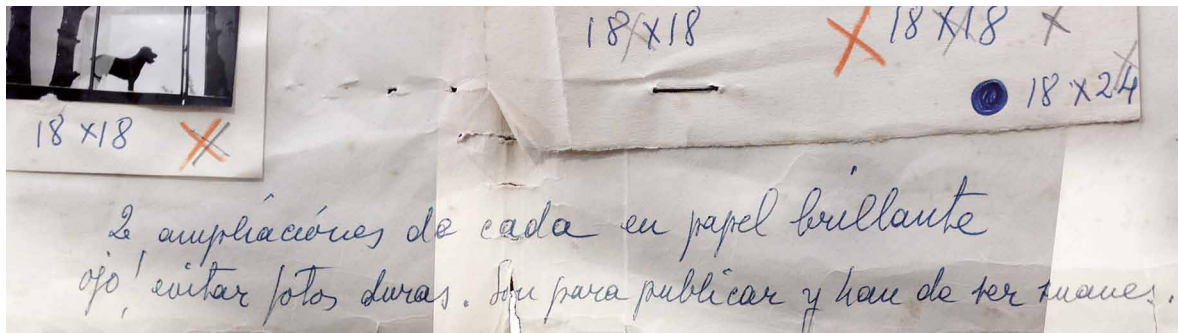 18 x 18
18 x 18
18 x 24
18 x 18
2 ampliaciónes de cada en papel brillante
ojo! evitar fotos duras. Son para publicar y han de ser suaves.